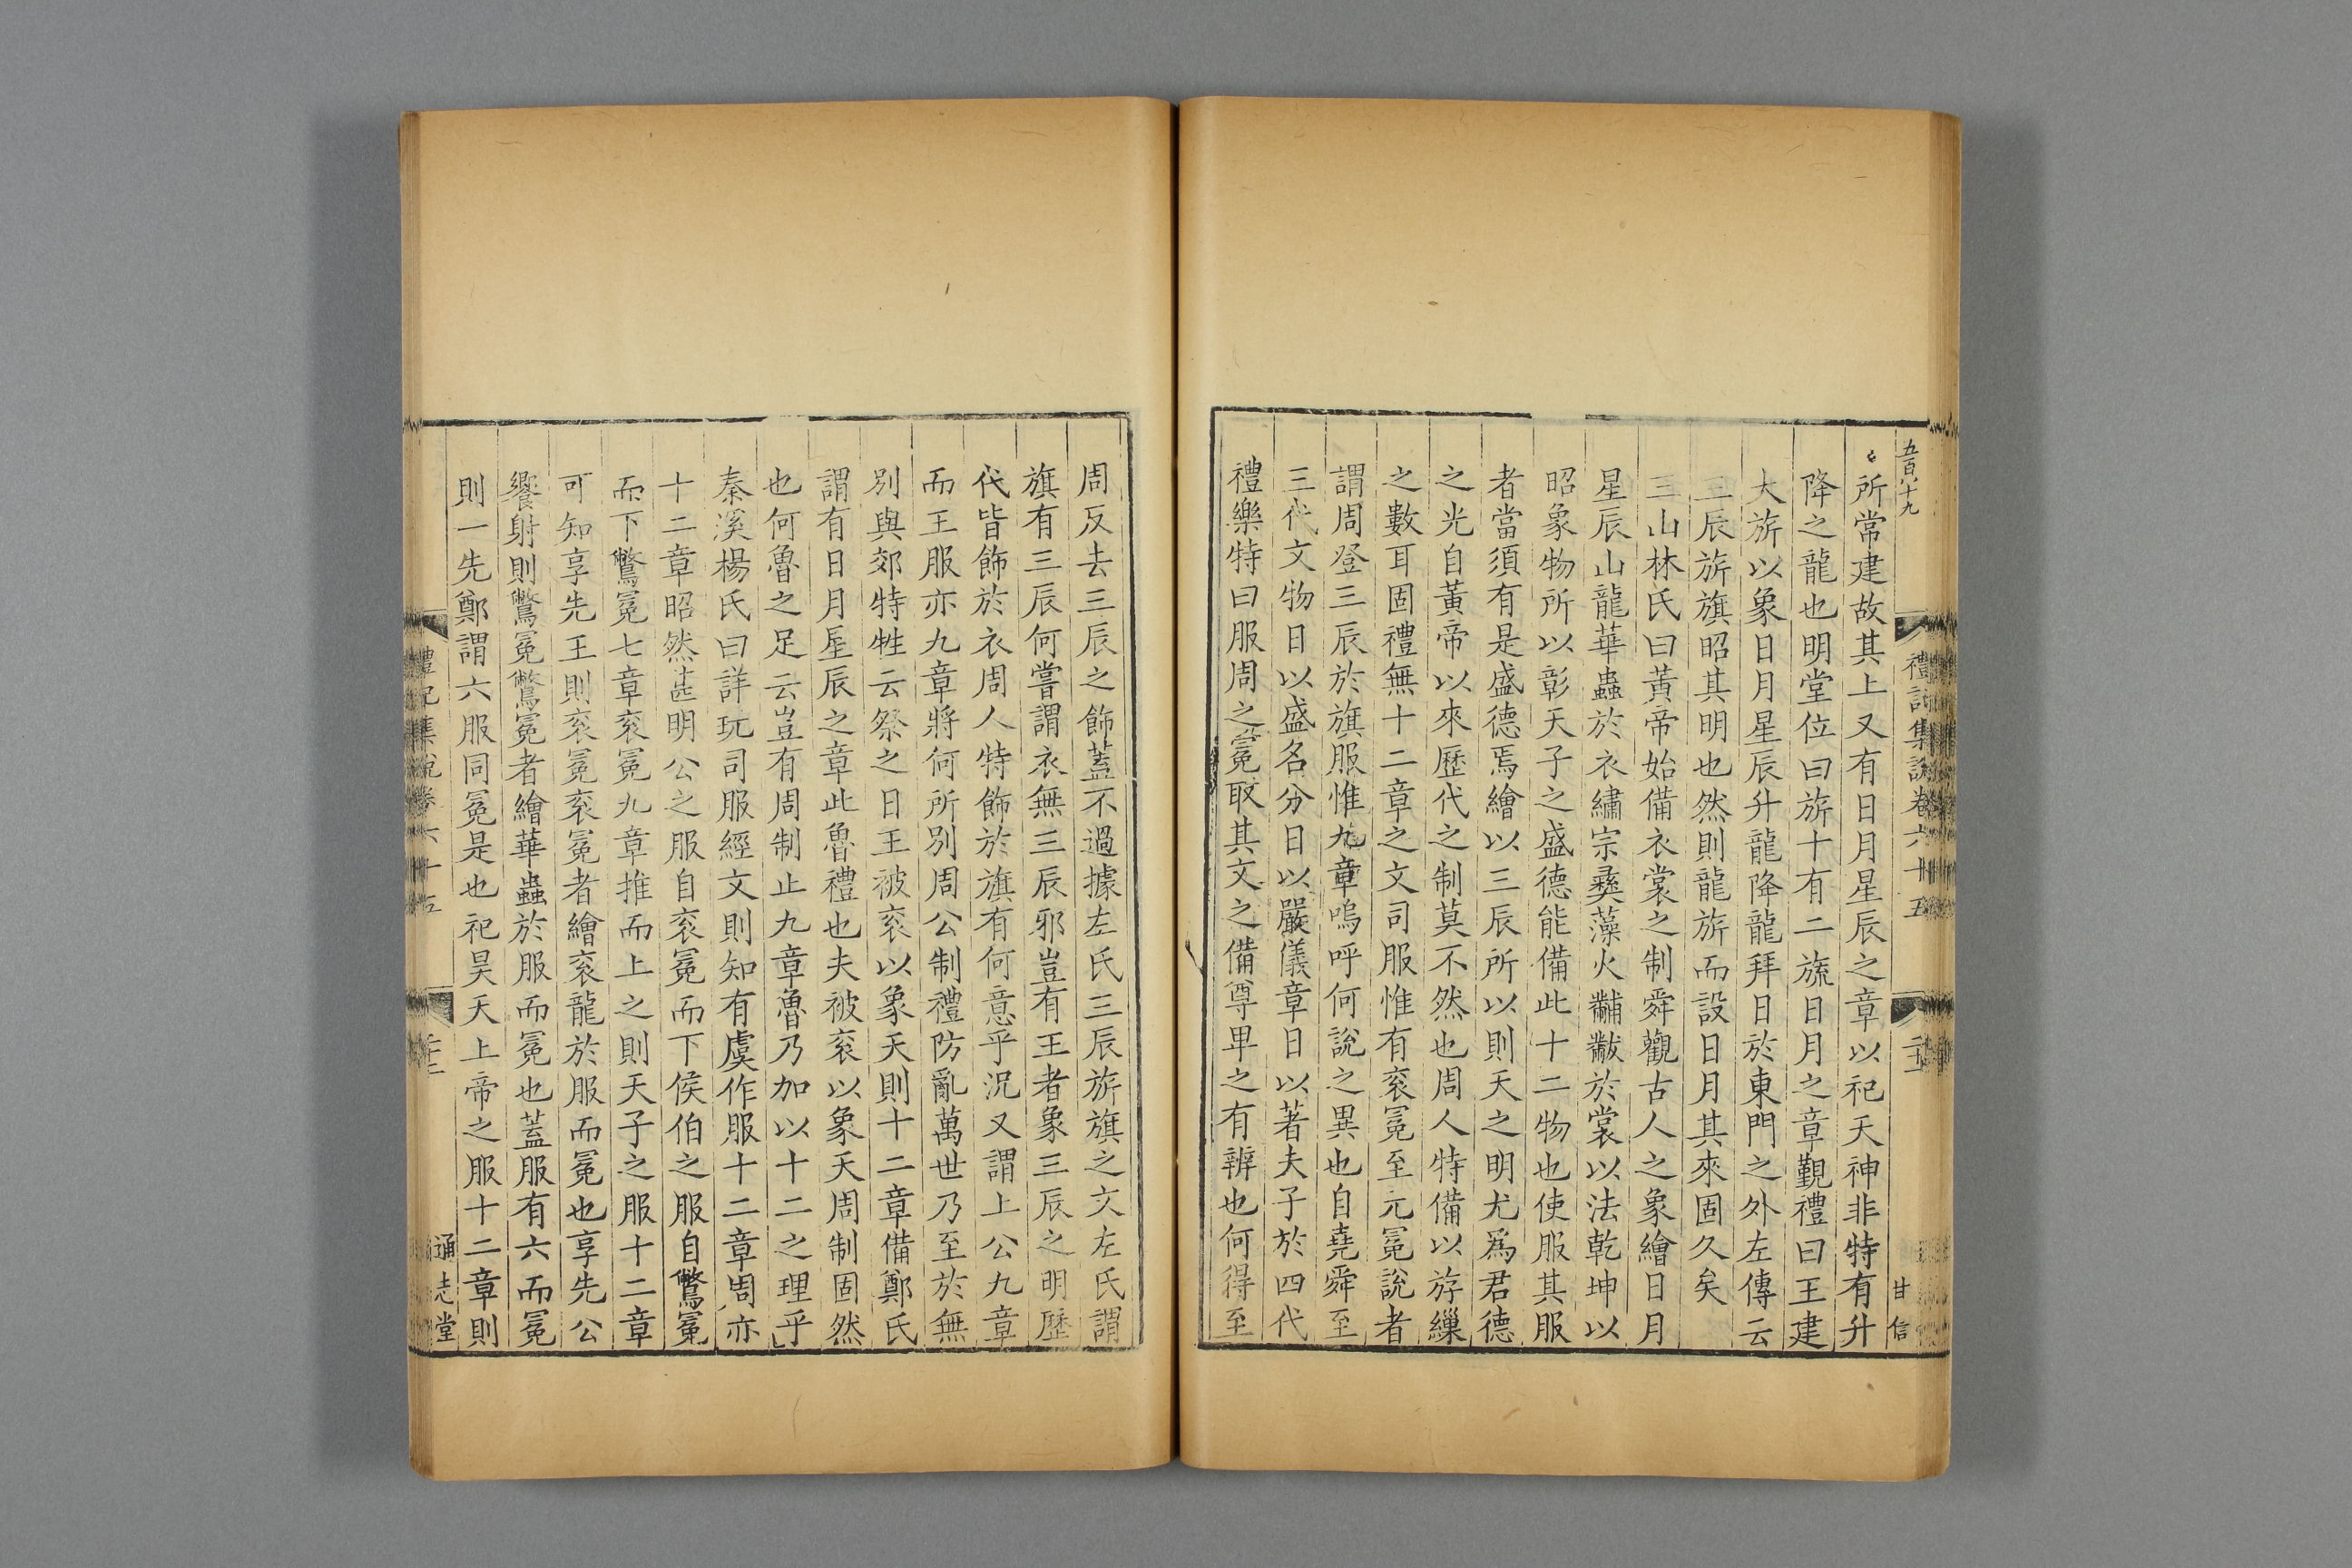 五百十九
禮記集說卷六十五
甘信
所常建故其上又有日月星辰之章以祀天神非特有升
降之龍也明堂位曰旂十有二旒日月之章覲禮曰王建
大旂以象日月星辰升龍降龍拜日於東門之外左傳云
三辰旂旗昭其明也然則龍旂而設日月其來固久矣
三山林氏曰黃帝始備衣裳之制舜觀古人之象繪日月
星辰山龍華蟲於衣繡宗彝藻火黼黻於裳以法乾坤以
昭象物所以彰天子之盛德能備此十二物也使服其服
者當須有是盛德焉繪以三辰所以則天之明尤爲君德
之光自黃帝以來歷代之制莫不然也周人特備以斿繅
之數耳固禮無十二章之文司服惟有衮冕至元冕說者
謂周登三辰於旗服惟九章嗚呼何說之異也自堯舜至
三代文物日以盛名分日以嚴儀章日以著夫子於四代
禮樂特曰服周之冕取其文之備尊卑之有辨也何得至
周反去三辰之飾蓋不過據左氏三辰旂旗之文左氏謂
旗有三辰何嘗謂衣無三辰邪豈有王者象三辰之明歷
代皆飾於衣周人特飾於旗有何意乎況又謂上公九章
而王服亦九章將何所別周公制禮防亂萬世乃至於無
別與郊特牲云祭之日王被衮以象天則十二章備鄭氏
謂有日月星辰之章此魯禮也夫被衮以象天周制固然
也何魯之足云豈有周制止九章魯乃加以十二之理乎
秦溪楊氏曰詳玩司服經文則知有虞作服十二章周亦
十二章昭然甚明公之服自衮冕而下侯伯之服自鷩冕
而下鷩冕七章衮冕九章推而上之則天子之服十二章
可知享先王則衮冕衮冕者繪衮龍於服而冕也享先公
饗射則鷩冕鷩冕者繪華蟲於服而冕也蓋服有六而冕
則一先鄭謂六服同冕是也祀昊天上帝之服十二章則
禮記集說卷六十五
通志堂